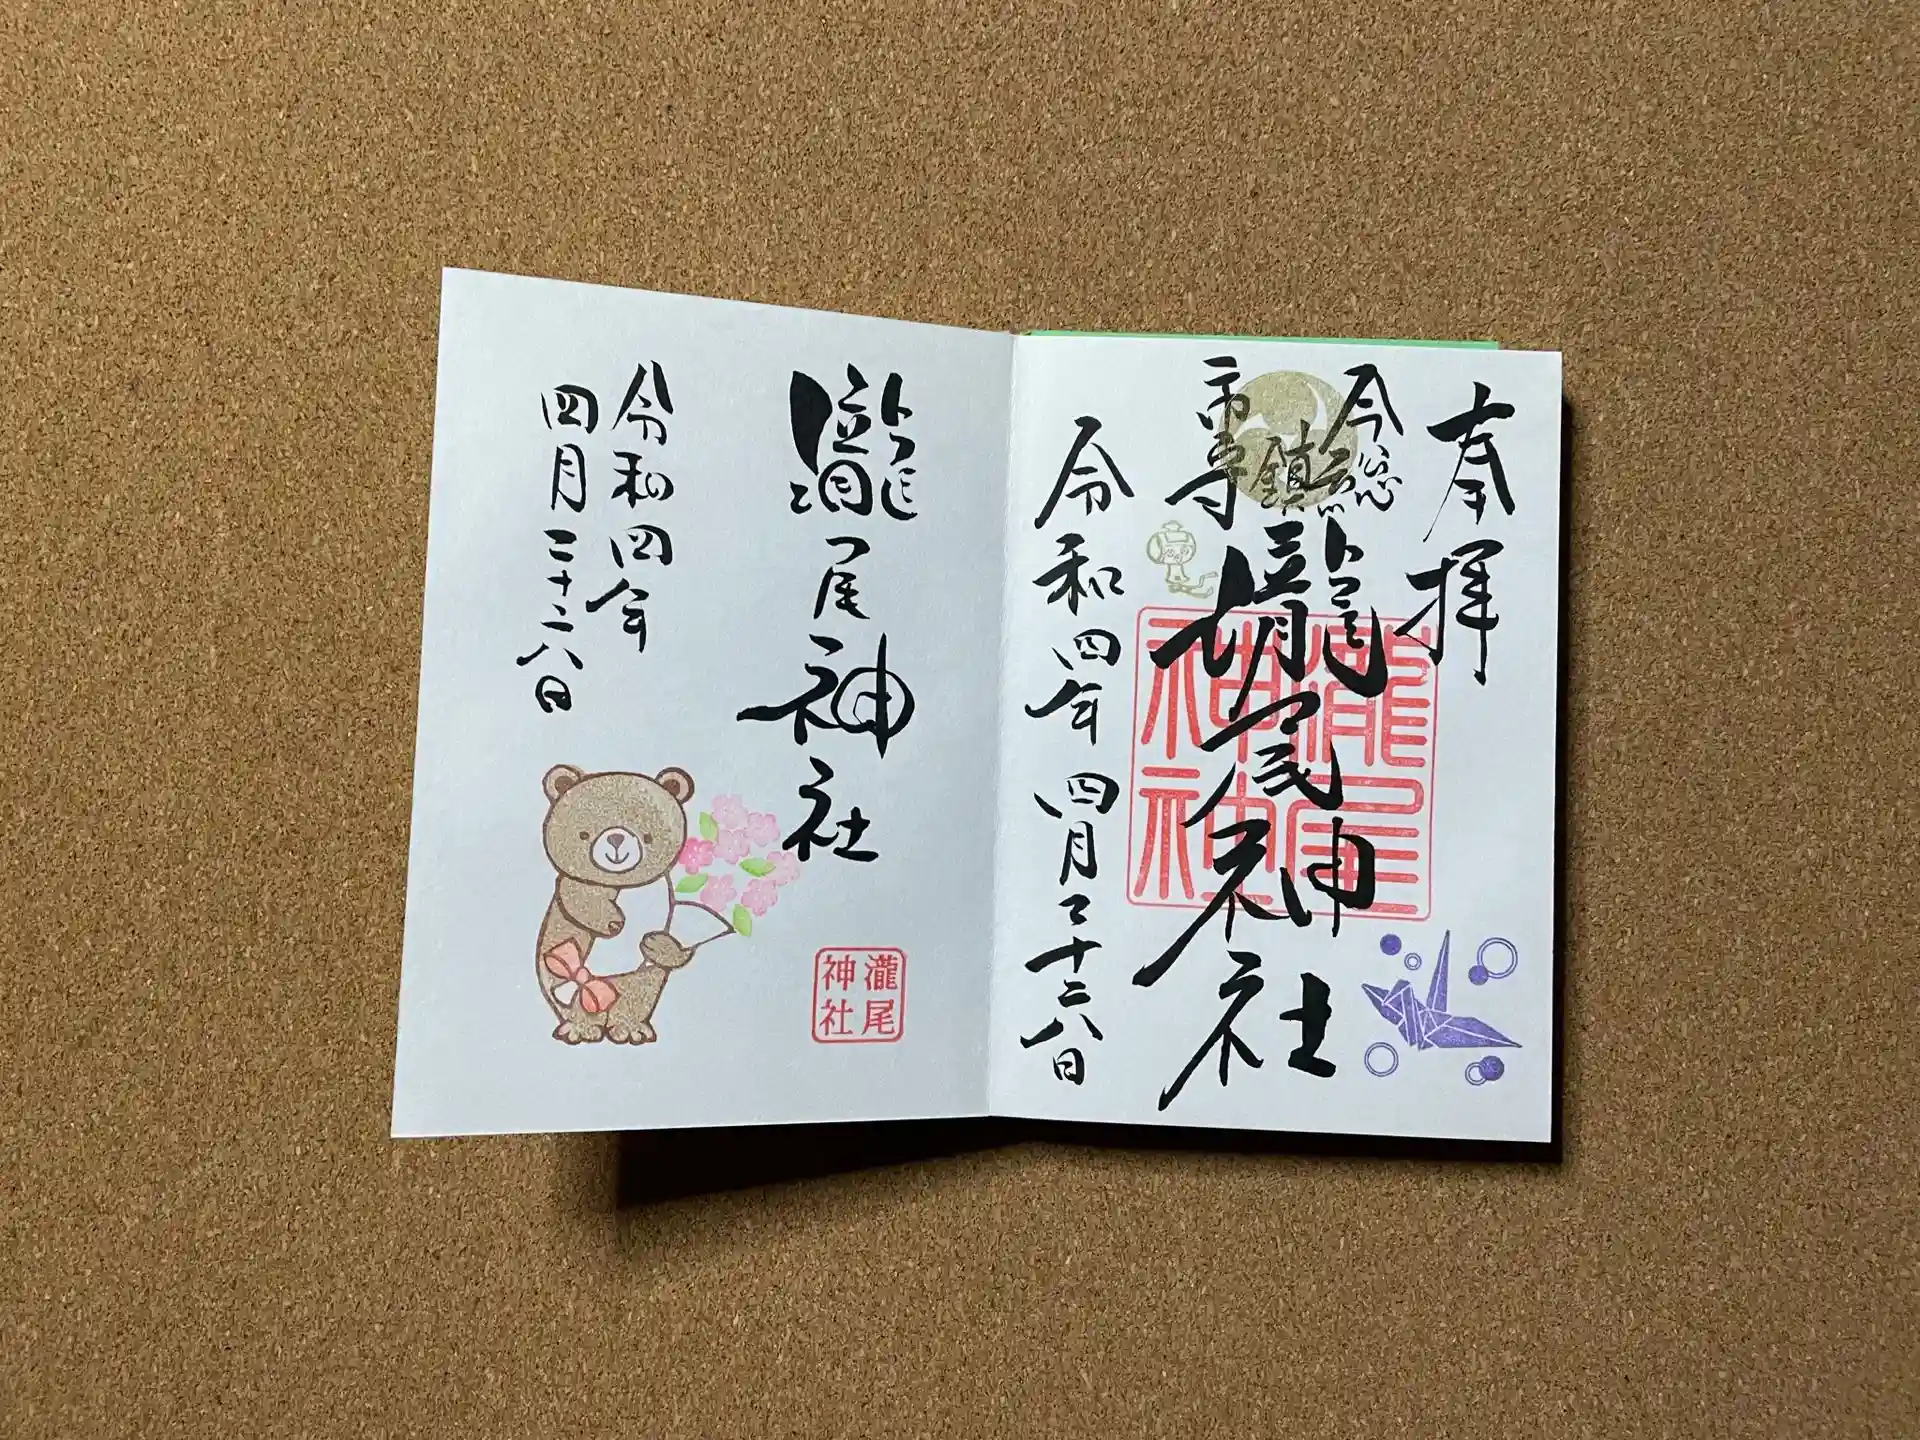 奉拝
今市
総鎮守
瀧尾神社
令和四年四月二十六日
瀧尾
神社
瀧尾神社
令和四年
四月二十六日
瀧尾
神社